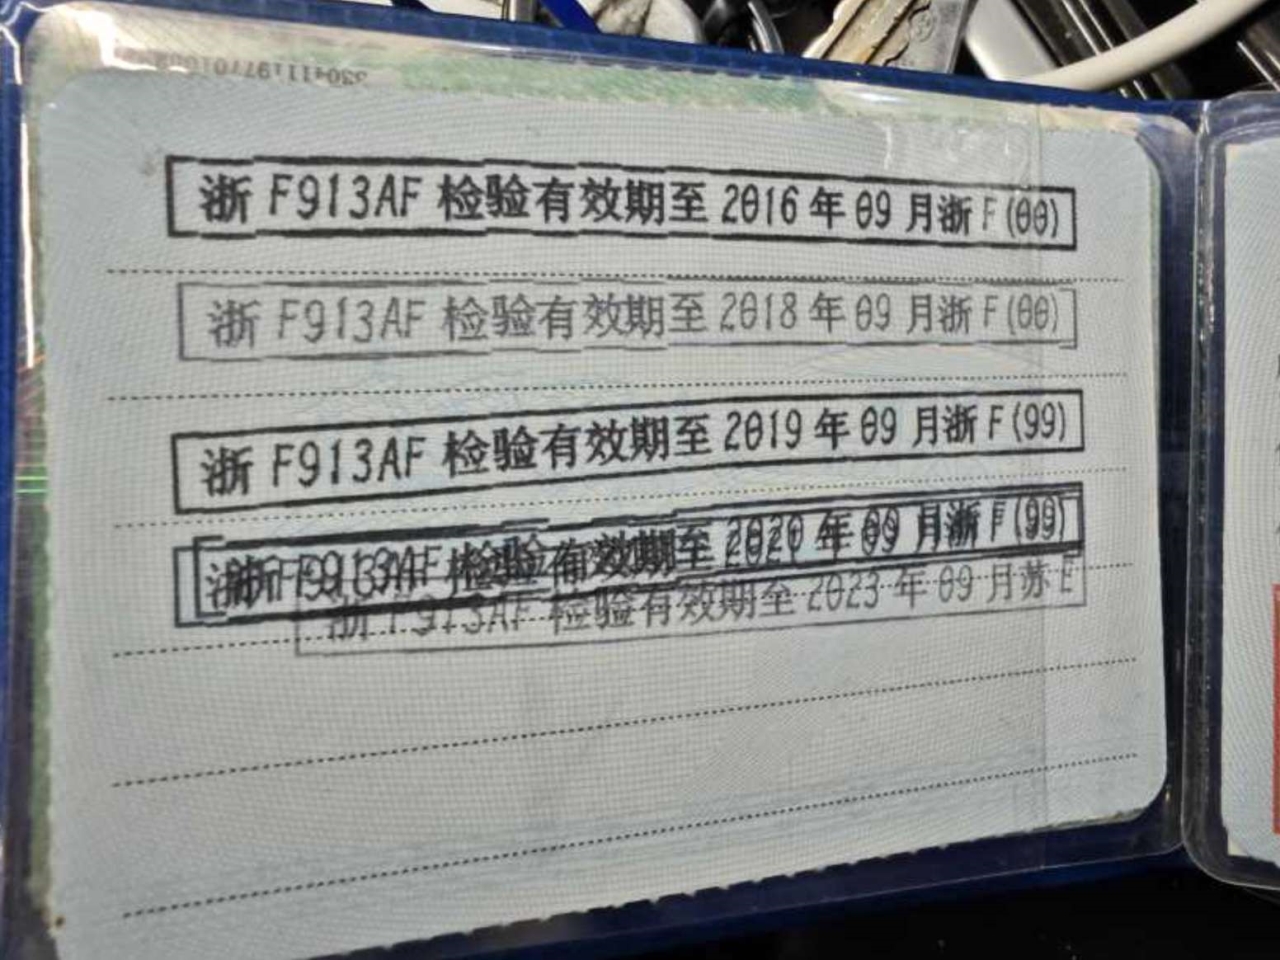 浙 F913AF 检验有效期至 2016 年 09 月浙 F (00)
浙 F913AF 检验有效期至 2018 年 09 月浙 F (00)
浙 F913AF 检验有效期至 2019 年 09 月浙 F (99)
检验有效期至 年 09 月浙 F (99)
浙 F913AF 检验有效期至 2023 年 09 月苏 E